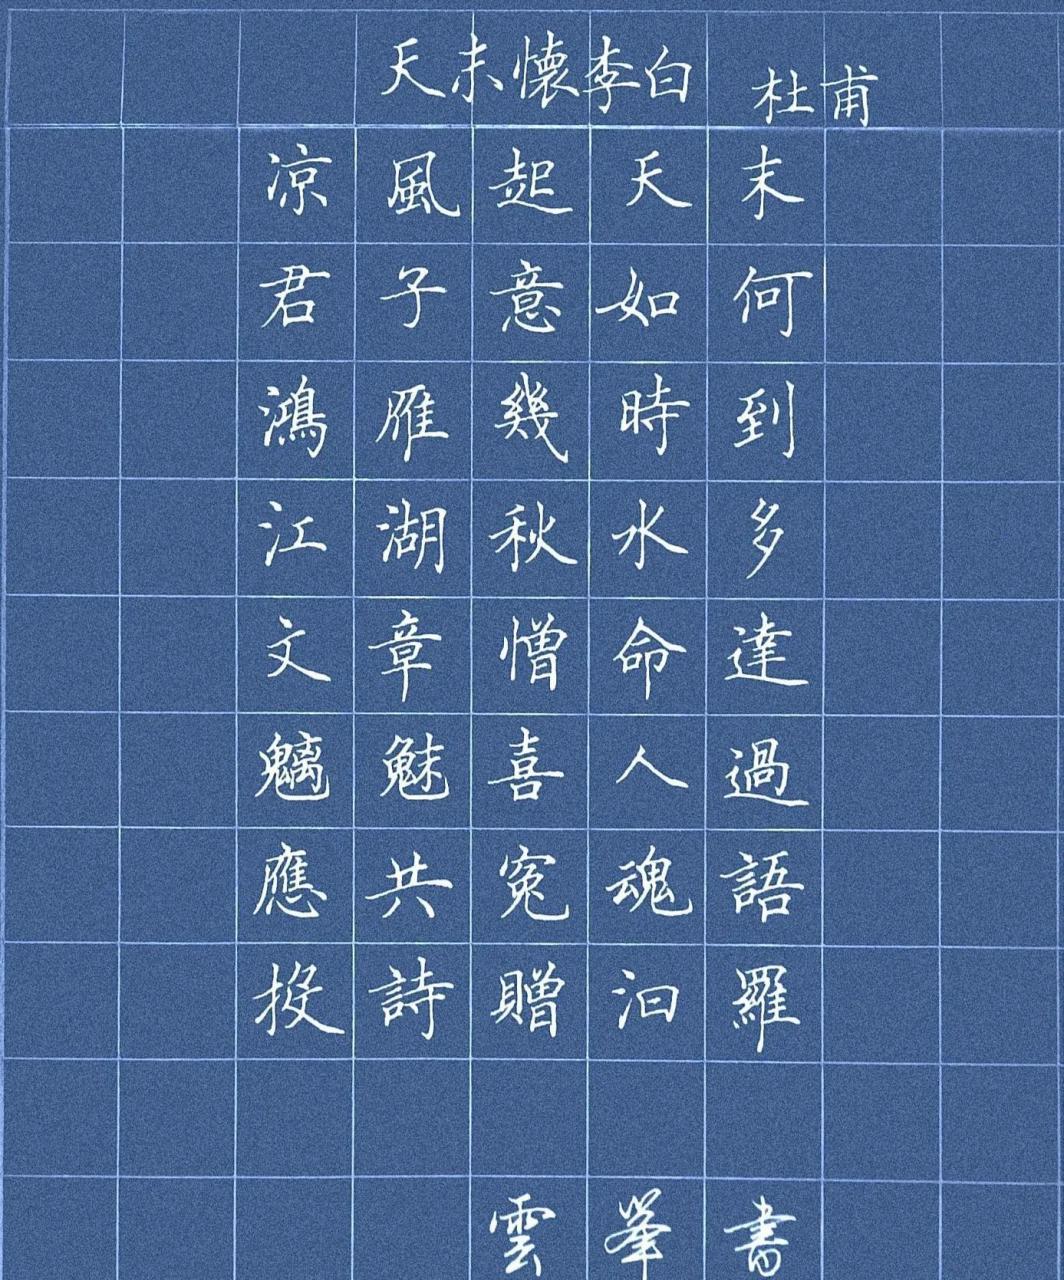 天末懷李白 杜甫
凉風起天末
君子意如何
鴻雁幾時到
江湖秋水多
文章憎命達
魑魅喜人過
應共冤魂語
投詩贈汨羅
雲峯書